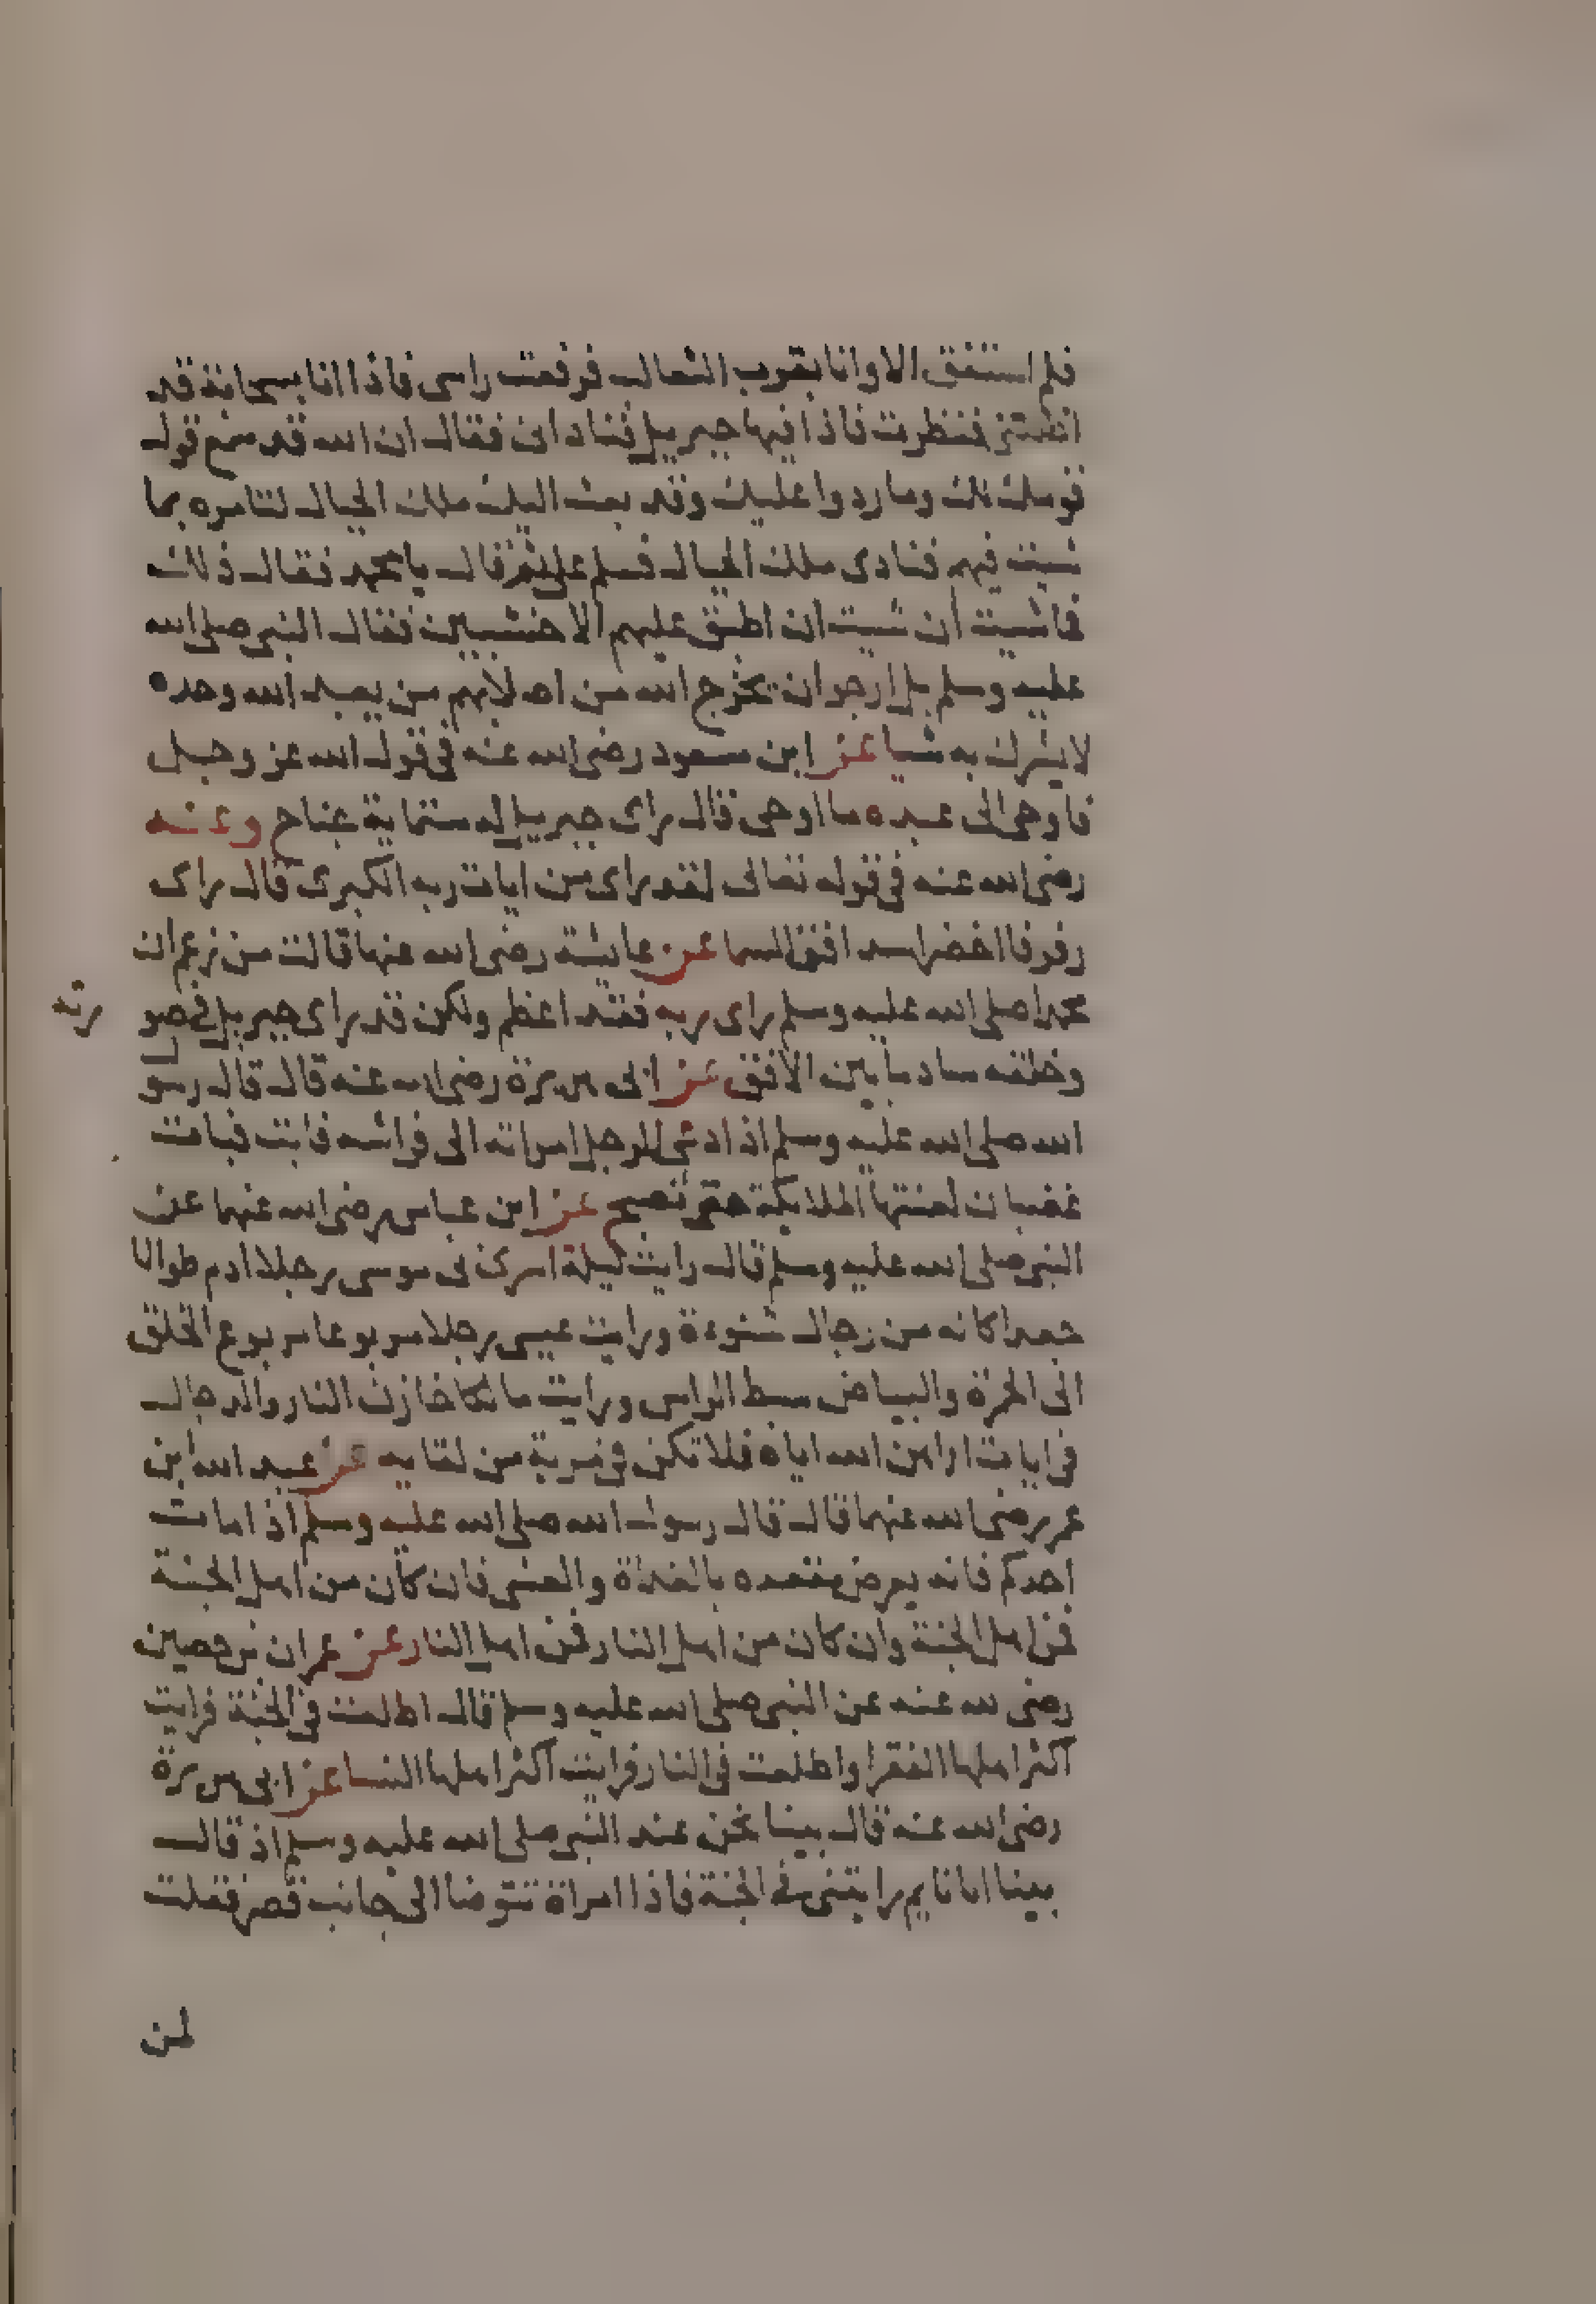 فلم استفق الا وانا بقرب الثعالب فرفعت راسى فاذا انا بسحابة قد
اظلتنى فنظرت فاذا فيها جبريل فنادانى فقال ان الله قد سمع قول
قومك لك وما ردوا عليك وقد بعث اليك ملك الجبال لتامره بما
شيت فيهم فنادى ملك الجبال فسلم على ثم قال يا محمد فقال ذلك
فما شيت ان شيت ان اطبق عليهم الاخشبين فقال النبى صلى الله
عليه وسلم بل ارجوا ن يخرج الله من اصلابهم من يعبد الله وحده
لا يشرك به شيا عن ابن مسعود رضى الله عنه فى قول الله عز وجل
فاوحى الى عبده ما اوحى قال راى جبريل له ستماية جناح وعنه
رضى الله عنه فى قوله تعالى لقد راى من ايات ربه الكبرى قال راى
رفرفا اخضر اسد افق السما عن عايشة رضى الله عنها قالت من زعم ان
محمدا صلى الله عليه وسلم راى ربه فقد اعظم ولكن قد راى جبريل فى صو
رته
وخلقه ساد ما بين الافق عن ابى هريرة رضى الله عنه قال قال رسول
الله صلى الله عليه وسلم اذا دعى الرجل امراته الى فراشه فابت فبات
غضبان لعنتها الملايكة حتى تصبح عن ابن عباس رضى الله عنهما عن
النبى صلى الله عليه وسلم قال رايت ليلة اسرى بى موسى رجلا ادم طوالا
جعدا كانه من رجال شنوءة ورايت عيسى رجلا مربوعا مربوع الخلق
الى الحمرة والبياض سبط الراس ورايت مالكا خازن النار والدجال
فى ايات اراهن الله اياه فلا تكن فى مرية من لقايه عن عبد الله ابن
عمر رضى الله عنهما قال قال رسول الله صلى الله عليه وسلم اذا مات
احدكم فانه يعرض مقعده بالغداة والعشى فان كان من اهل الجنة
فمن اهل الجنة وان كان من اهل النار فمن اهل النار عن عمران بن حصين
رضى الله عنه عن النبى صلى الله عليه وسلم قال اطلعت فى الجنة فرايت
اكثر اهلها الفقرا واطلعت فى النار فرايت اكثر اهلها النسا عن ابى هريرة
رضى الله عنه قال بينا نحن عند النبى صلى الله عليه وسلم اذ قال
بينا انا نايم رايتنى فى الجنة فاذا امراة تتوضا الى جانب قصر فقلت
لمن